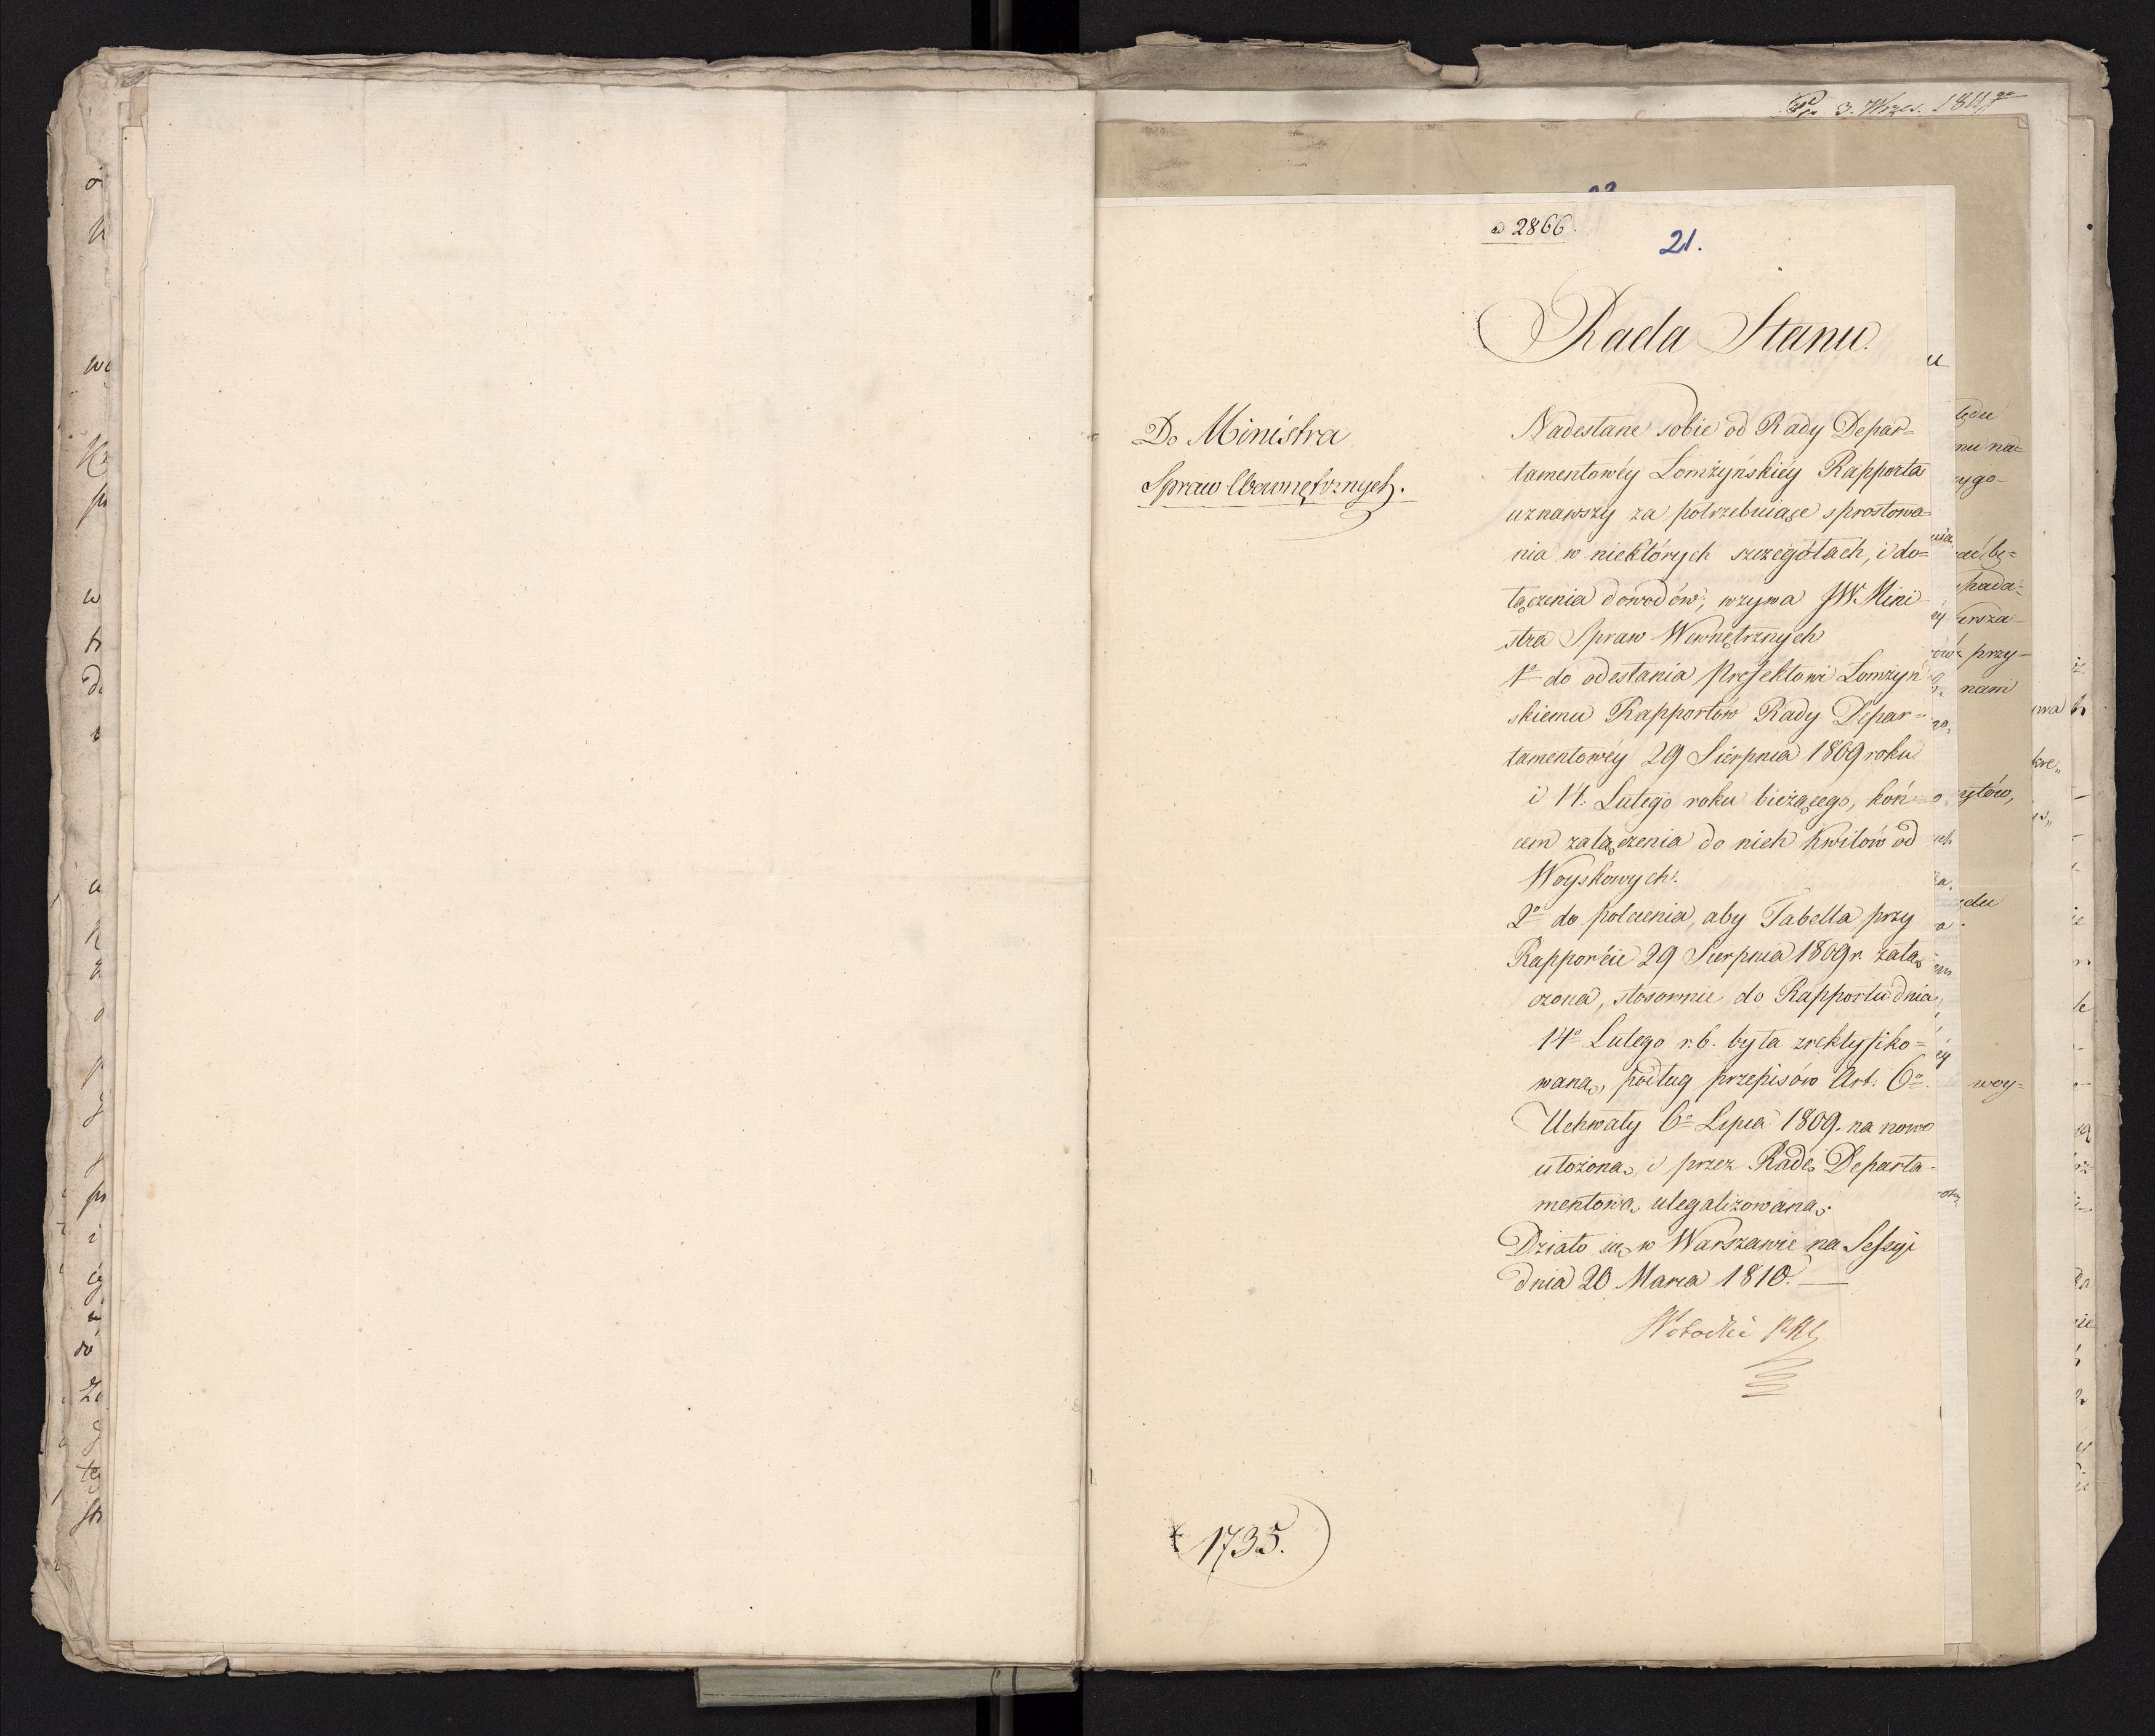 3. Wrzes. 1811
2866.
21.
Rada Stanu.
Do Ministra
Spraw Wewnętrznych.
Nadesłane sobie od Rady Depar=
tamentowéy Łomżyńskiéy Rapporta
uznawszy za potrzebuiące sprostowa
nia w niektórych szczegółach, i do=
łączenia dowodów; wzywa JW. Mini
stra Spraw Wewnętrznych
1o do odesłania Prefektowi Łomżyń
skiemu Rapportów Rady Depar=
tamentowéy 29 Sierpnia 1809 roku
i 14. Lutego roku bieżącego, koń=
cem załączenia do nich kwitów od
Woyskowych.
2o do polecenia, aby Tabella przy
Rapporcie 29 Sierpnia 1809 r. załą
czona, stosownie do Rapportu dnia
14o Lutego r. b. była zrektyfiko=
waną, podług przepisów Art. 6o
Uchwały 6o Lipca 1809. na nowo
ułożoną, i przez Radę Departa-
mentową ulegalizowaną.
Działo się w Warszawie na Sessyi
dnia 20 Marca 1810.
1735.